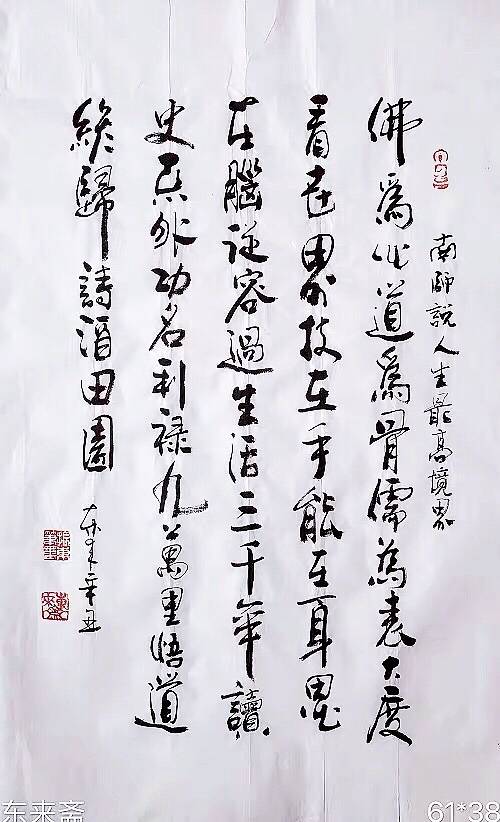 南師說人生最高境界
佛爲心道爲骨儒爲表大度
看世界技在手能在身思
在腦從容過生活三千年讀
史不外功名利祿九萬里悟道
終歸詩酒田園
东来辛丑
东来斋
61*38